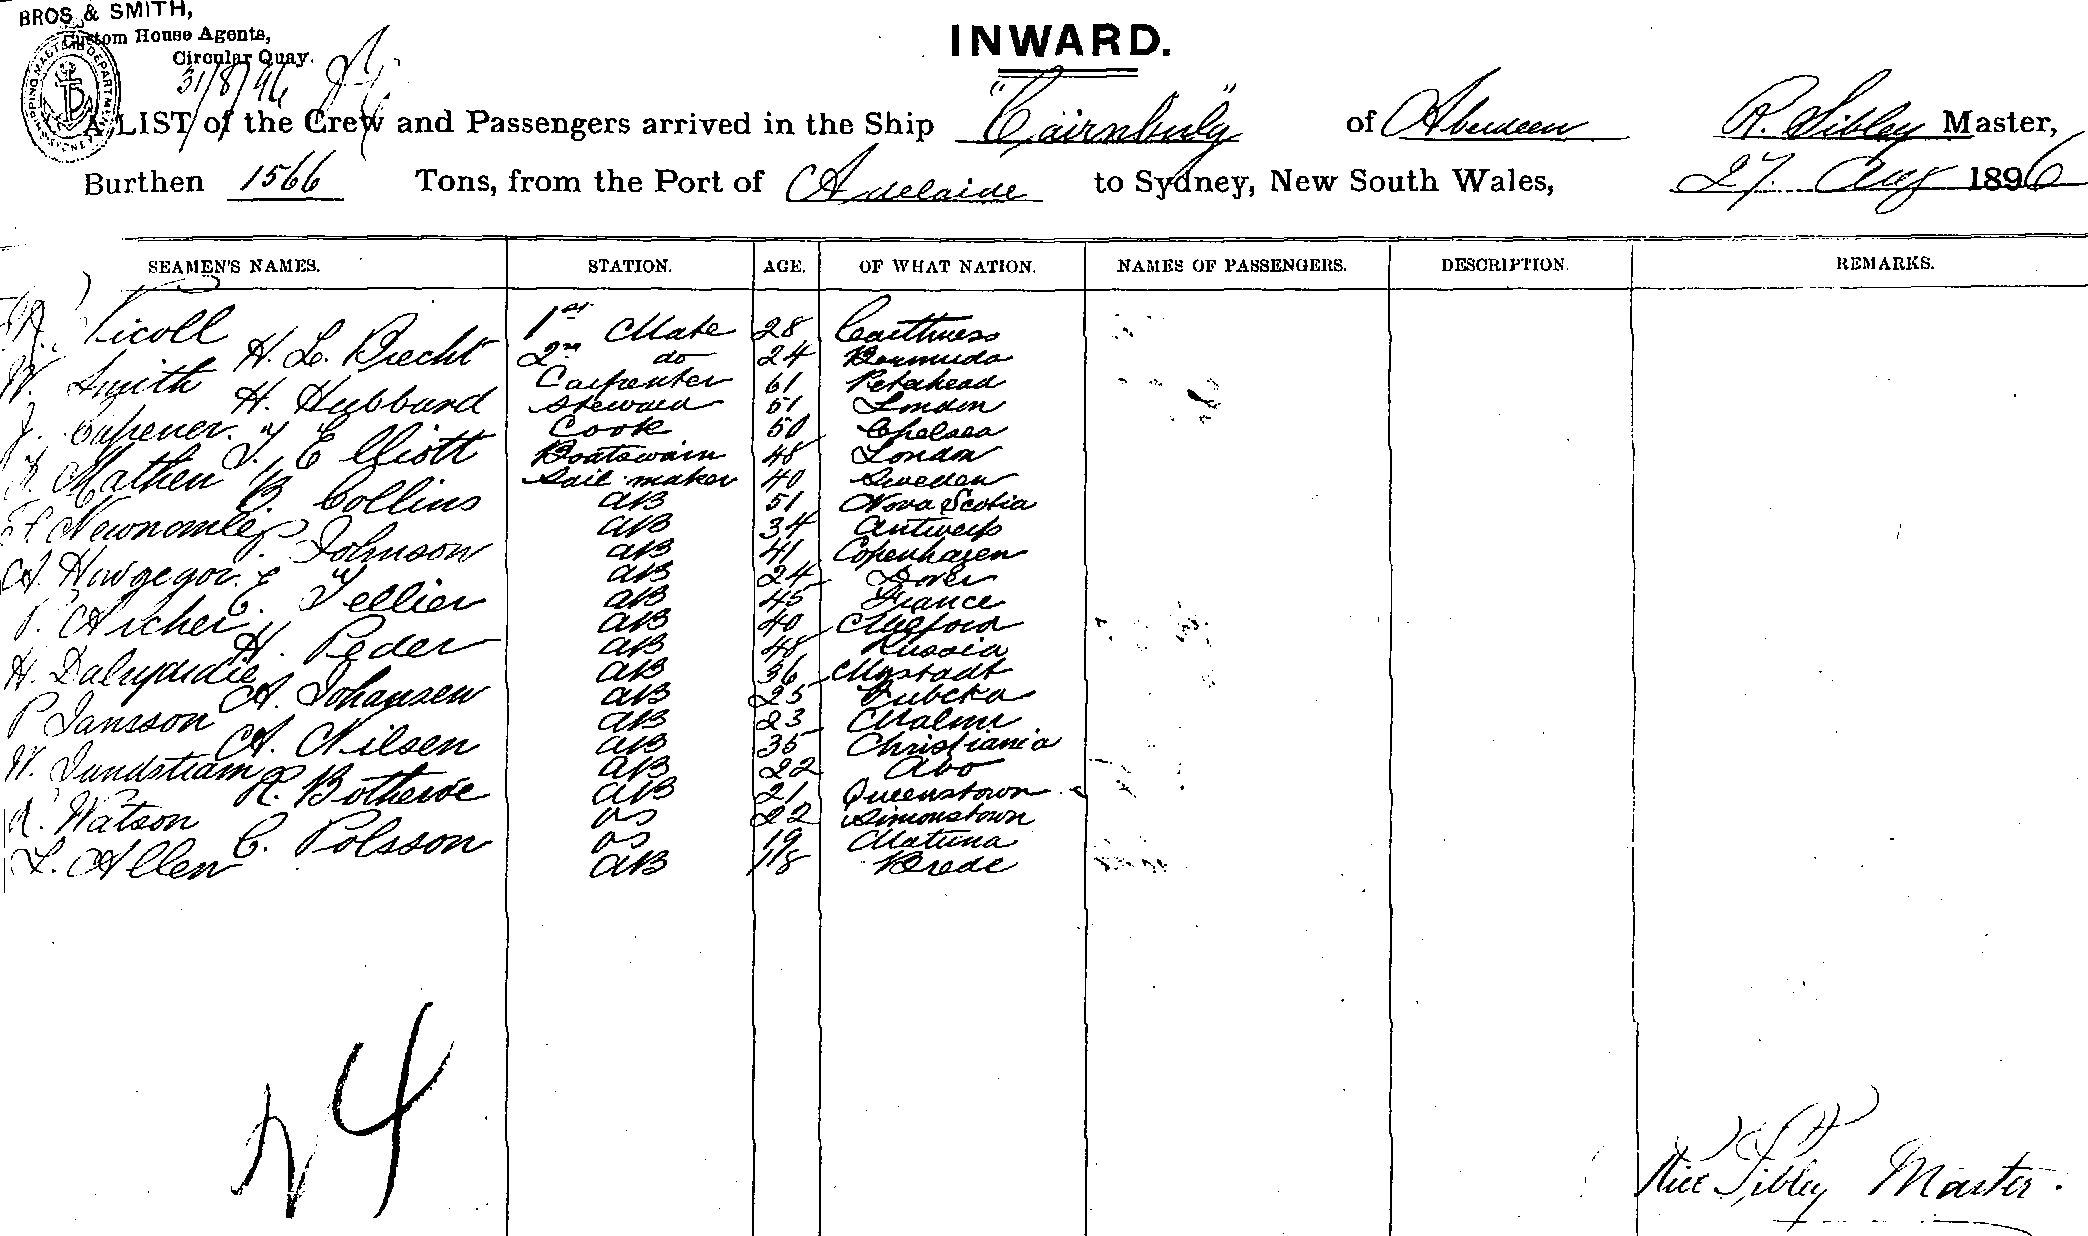 BROS & SMITH,
Custom House Agents,
Circular Quay.
31/8/96
SHIPPING MASTER'S DEPARTMENT SYDNEY
INWARD.
A LIST of the Crew and Passengers arrived in the Ship "Cairnbulg" of Aberdeen R. Sibley Master,
Burthen 1566 Tons, from the Port of Adelaide to Sydney, New South Wales, 27. Aug 1896
SEAMEN'S NAMES. STATION. AGE. OF WHAT NATION. NAMES OF PASSENGERS. DESCRIPTION. REMARKS.
Nicoll 1st Mate 28 Caithness
H. L. Brecht 2nd do 24 Bermuda
W. Smith Carpenter 61 Peterhead
H. Hubbard Steward 51 London
J. Capener. Cook 50 Chelsea
T. Elliott Boatswain 48 London
Mathen Sail maker 40 Sweden
B. Collins AB 51 Nova Scotia
AB 34 Antwerp
P. Johnson AB 41 Copenhagen
A. Howgegor. AB 24 Dover
E. Tellier AB 45 France
P. Archer AB 40 Milford
H. Peder AB 48 Russia
H. AB 36
A. Johansen AB 25
P Jansson AB 23 Malmo
A. Nilsen AB 35 Christiania
W. Sundstram AB 22 Abo
R. AB 21 Queenstown
A. Watson OS 22 Simonstown
C. Polsson OS 19
L. Allen AB 18
24
Rice Sibley Master.